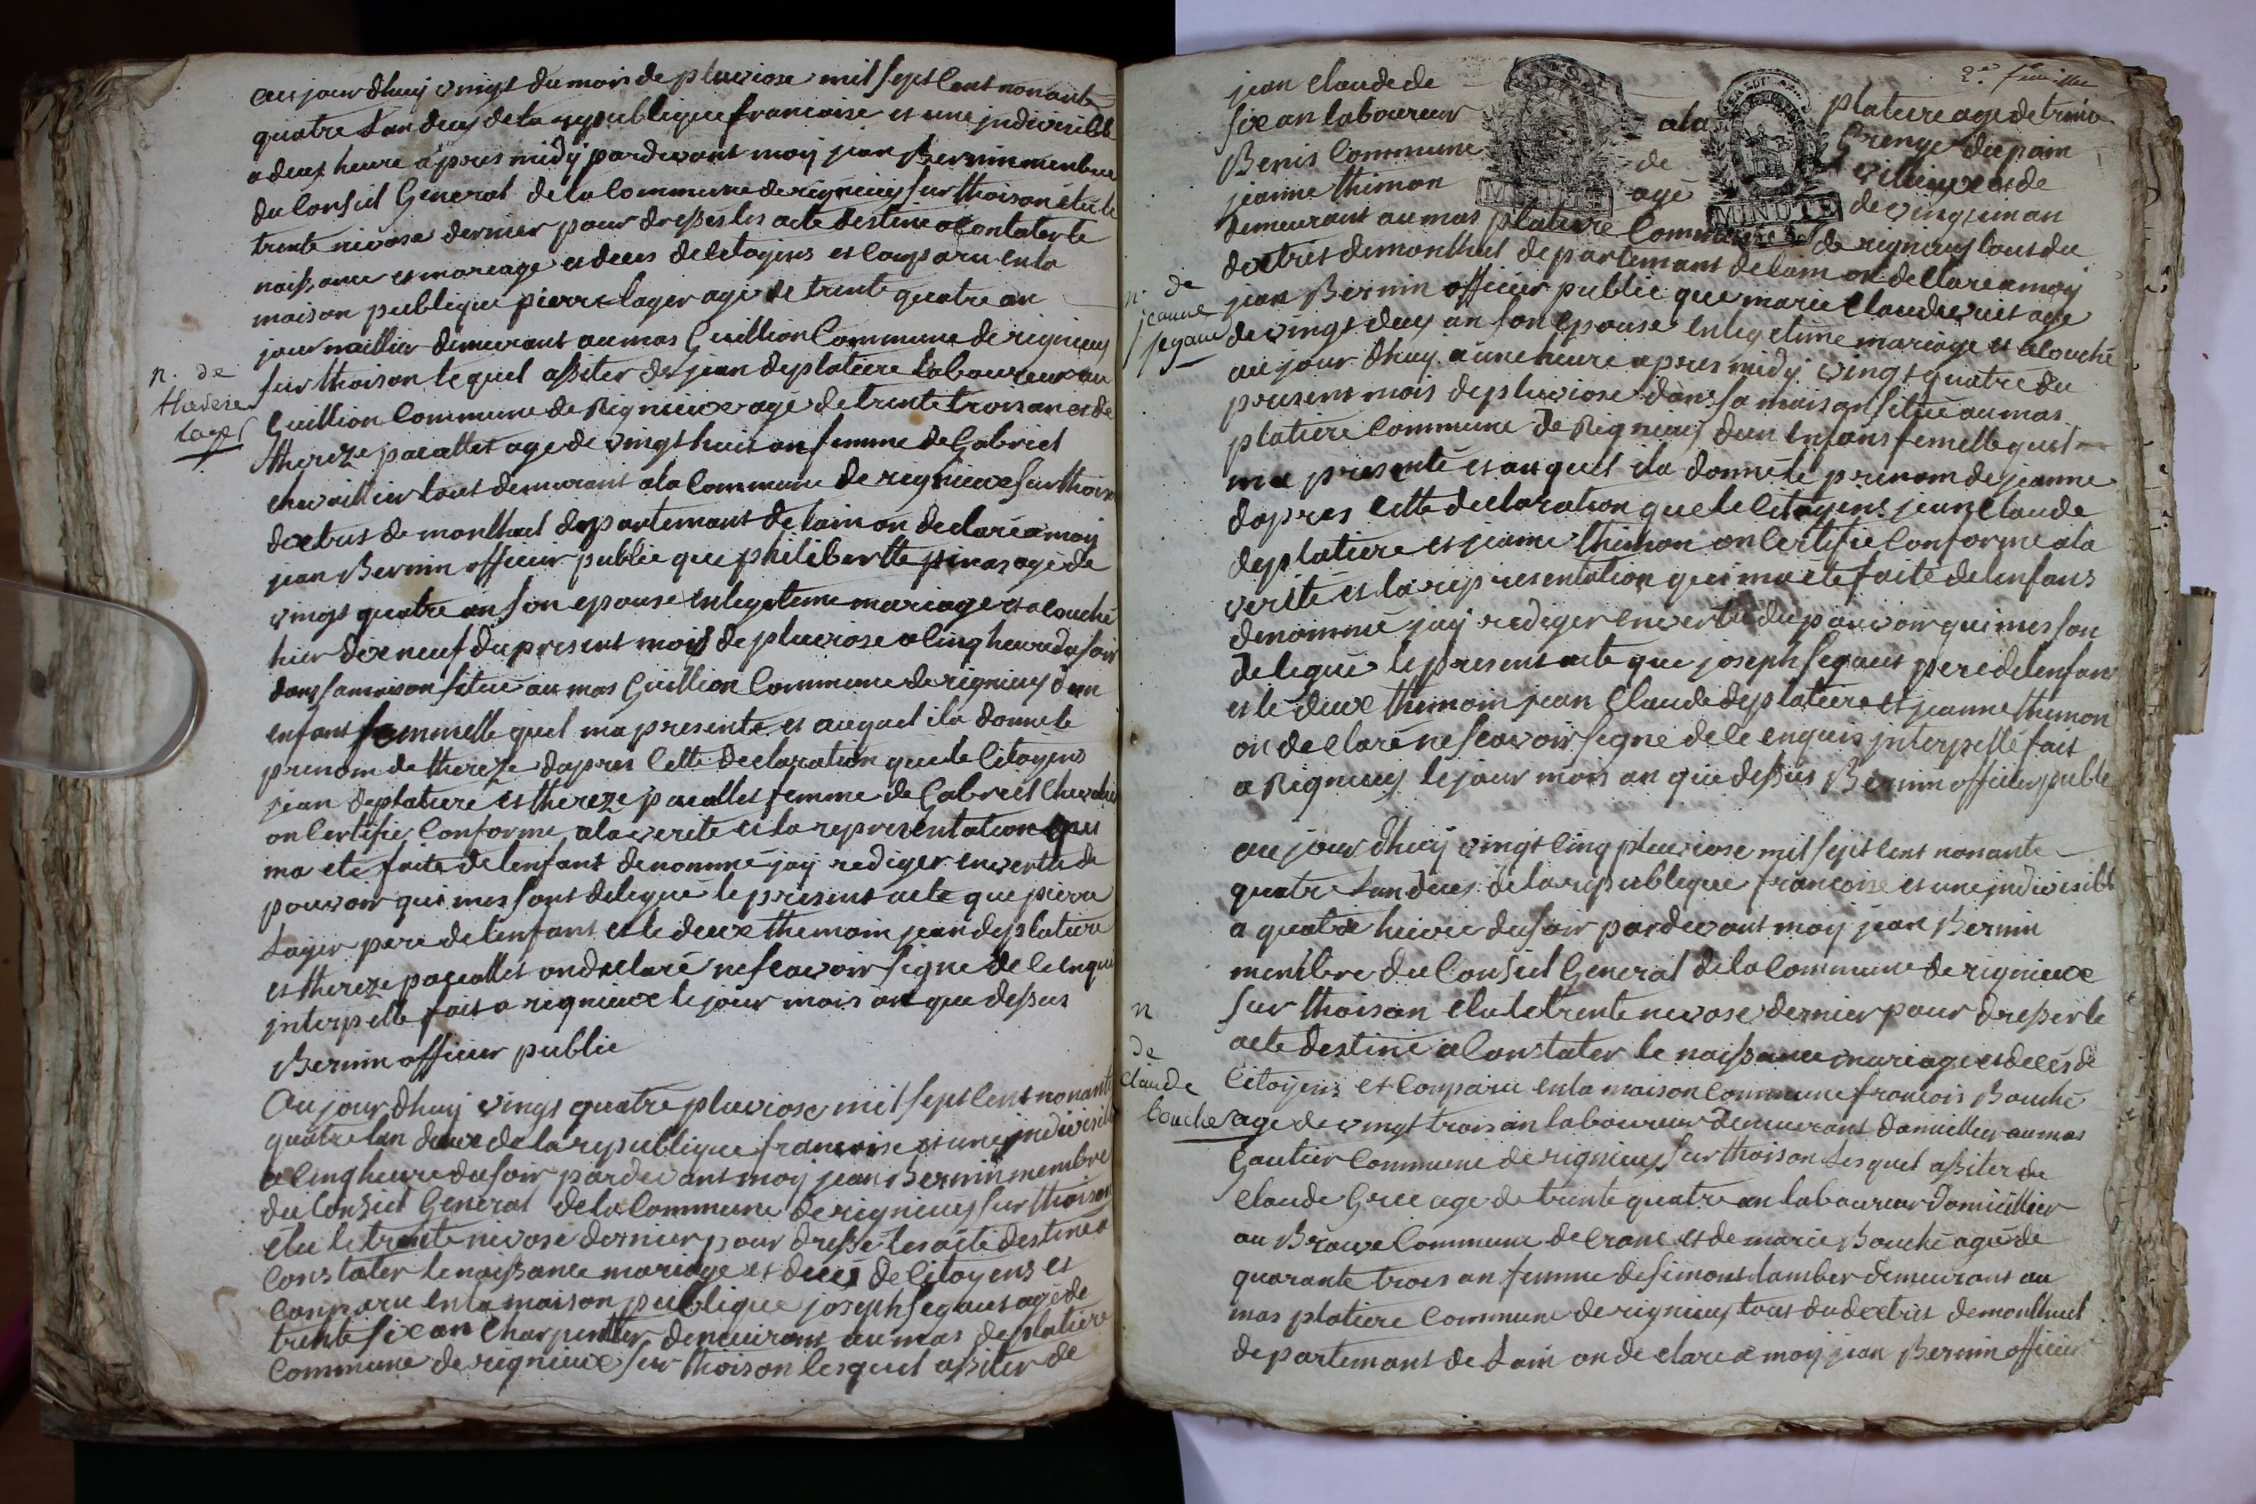 au jour dhuy vingt du mois de pluviose mil sept cent nonante
quatre Lan deux de la republique francoise et une jndivisible
a deux heure apres midy pardevant moy jean Bernin menbre
du Conseil General de la Commune de rignieux sur thoison élu le
trente nivose dernier pour dresser les acte destine a Contater le
naissance et mareage et deces de Citoyens et Comparu en la
maison publique pierre layer age de trente quatre an
journaillier demeurant au mas Guillion Commune de rignieux
n. de
therese
layer
sur thoison lequel assiter de jean deplatiere laboureur au
Guillion Commune de Rignieux agé de trente trois an et de
thereze pacallet age de vingt huit an femme de Gabriel
chevaillier tout demeurant a la Commune de rignieux sur thoison
dextrit de montluel departemant de lain on declaré a moy
jean Bernin officier public que philibertte pinas agé de
vingt quatre an son epouse en legeteme mariage et acouché
hier dixneuf du present mois de pluviose a cinq heure du soir
dans sa maison situé au mas Guillion Commune de rignieux dun
enfant femmelle quil ma presenté et auquel ila donné le
prenom de thereze dapres Cette declaration que le Citoyens
jean deplatiere et thereze pacallet femme de Gabriel Chevalie
on Certifie Conforme a la verite et la representation qui
ma eté faite de lenfant denommé jay rediger en vertu de
pouvoir qui mes sont delegué le present acte que pierre
Layer pere de lenfant et le deux themoin jean deplatiere
et thereze pacallet on declaré ne scavoir signe de ce enqui
jnterpellé fait a rignieux le jour mois an que dessus
Bernin officier public
Au jour dhuy vingt quatre pluviose mil sept cent nonante
quatre lan deux de la republique francoise et une jndivisible
a cinq heure du soir pardevant moy jean Bernin membre
du Conseil General de la Commune de rignieux sur thoison
élu le trente nivose dernier pour dresse les acte destiné a
Constater le naissance mariage et décés de Citoyens et
Comparu en la maison publique joseph segaut agé de
trente six an Charpentier demeurant au mas deplatiere
Commune de rignieux sur thoison lesquel assiter de
2e feuille
jean Claude de platiere age de trente
six an laboureur a la Grenge du pain
Benis Commune de villieux et de
jeanne thimon agé de vingt un an
demeurant au mas platiere Commune de rignieux tout du
dextrit de montluel departemant de lain on declaré a moy
n. de
jeanne
segaut
jean Bernin officier public que marie Claudie age
de vingt deux an son Epouse en legetime mariage et acouché
au jour dhuy a une heure apres midy vingt quatre du
present mois de pluviose dans sa maison situé au mas
platiere Commune de Rignieux dun Enfans femelle quil
ma presenté et auquel ila donné le prenom de jeanne
dapres Cette declaration que le Citoyens jean Claude
deplatiere et jeanne thimon on Certifié Conforme a la
verité et la representation qui ma été faite de lenfans
denommé jay rediger en vertu du pouvoir qui mes son
delegué le present acte que joseph segaut pere de lenfans
et le deux themoin jean Claude deplatiere et jeanne thimon
on declaré ne scavoir signe de ce enquis jnterpellé fait
a Rignieux le jour mois an que dessus Bernin officier public
au jour dhuy vingt cinq pluviose mil sept cent nonante
quatre Lan deux de la republique francoise et une jndivisible
a quatre heure du soir pardevant moy jean Bernin
membre du Conseil General de la Commune de rignieux
n
de
claude
bouché
sur thoison élu le trente nivose dernier pour dresser le
acte destiné a Constater le naissance mariage et decés de
Citoyens et Comparu en la maison Commune francois Bouché
age de vingt trois an laboureur demeurant domicillier au mas
Gautier Commune de rignieux sur thoison Lesquel assiter de
Claude Gree age de trente quatre an laboureur domicillier
au Commune de Crans et de marie Bouché agé de
quarante trois an femme de simont lamber demeurant au
mas platiere Commune de rignieux tout du dextrit de montluel
departemant de Lain on declaré a moy jean Bernin officier
MINUTE
MINUTE